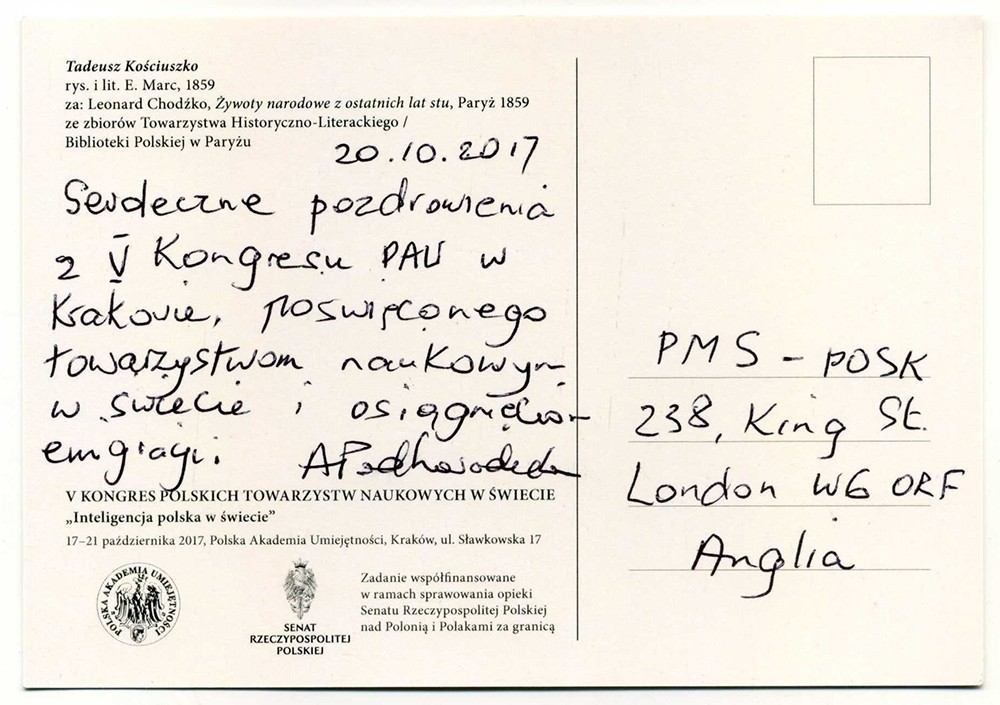 Tadeusz Kościuszko
rys. i lit. E. Marc, 1859
za: Leonard Chodźko, Żywoty narodowe z ostatnich lat stu, Paryż 1859
ze zbiorów Towarzystwa Historyczno-Literackiego /
Biblioteki Polskiej w Paryżu
20.10.2017
Serdeczne pozdrowienia
z V Kongresu PAU w
Krakowie, poświęconego
towarzystwom naukowym
w świecie i osiągnięciom
emigracji.
V KONGRES POLSKICH TOWARZYSTW NAUKOWYCH W ŚWIECIE
„Inteligencja polska w świecie”
17–21 października 2017, Polska Akademia Umiejętności, Kraków, ul. Sławkowska 17
POLSKA AKADEMIA UMIEJĘTNOŚCI
SENAT
RZECZYPOSPOLITEJ
POLSKIEJ
Zadanie współfinansowane
w ramach sprawowania opieki
Senatu Rzeczypospolitej Polskiej
nad Polonią i Polakami za granicą
PMS - POSK
238, King St.
London W6 ORF
Anglia